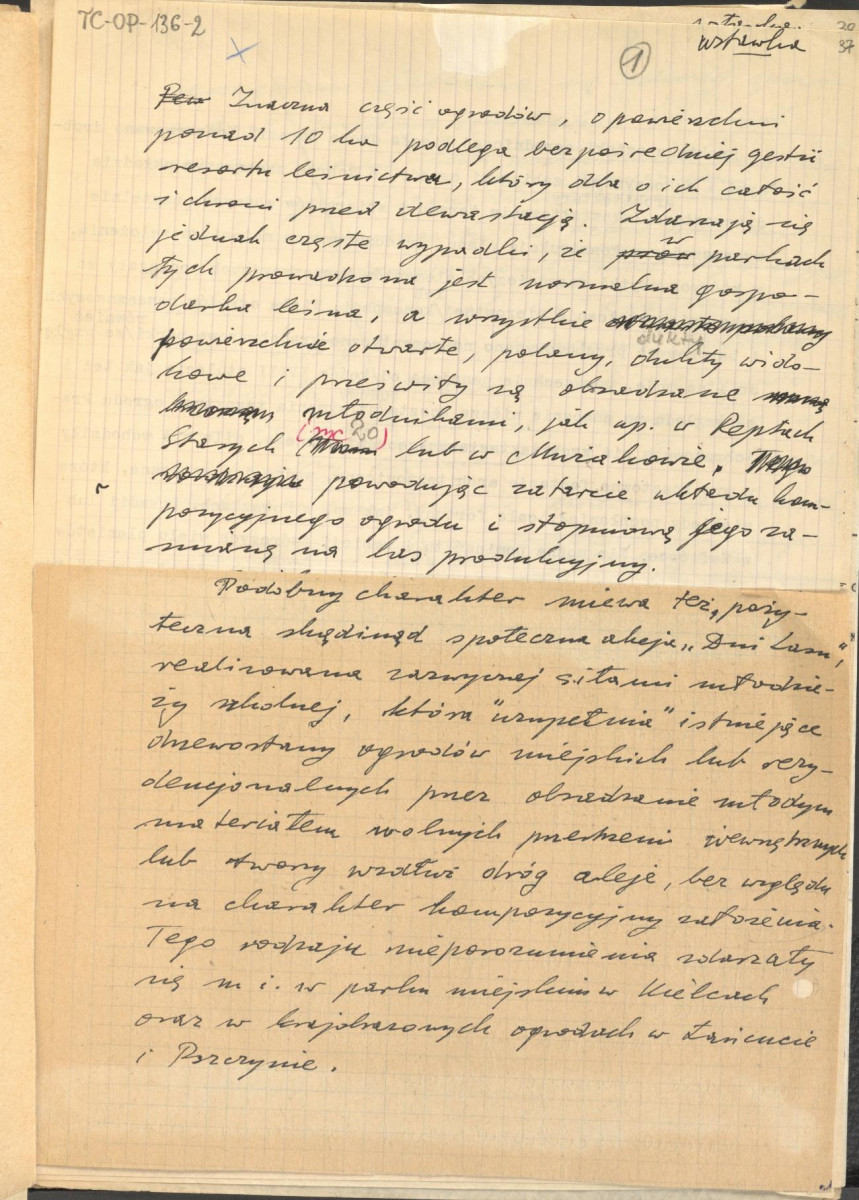 TC-OP-136-2
wstawka
20
37
1
Znaczna część ogrodów, o powierzchni
ponad 10 ha podlega bezpośredniej gestii
resortu leśnictwa, który dba o ich całość
i chroni przed dewastacją. Zdarzają się
jednak częste wypadki, że w parkach
tych prowadzona jest normalna gospo-
darka leśna, a wszystkie
dukty
powierzchnie otwarte, polany, dukty wido-
kowe i prześwity są obsadzane
młodnikami, jak np. w Reptach
Starych (ryc 20) lub w Mużakowie,
powodując zatarcie układu kom-
pozycyjnego ogrodu i stopniową jego za-
mianę na las produkcyjny.
Podobny charakter miewa też, poży-
teczna skądinąd społeczna akcja „Dni Lasu",
realizowana zazwyczaj siłami młodzie-
ży szkolnej, która "uzupełnia" istniejące
drzewostany ogrodów miejskich lub rezy-
dencjonalnych przez obsadzanie młodym
materiałem wolnych przestrzeni wewnętrznych
lub tworzy wzdłuż dróg aleje, bez względu
na charakter kompozycyjny założenia.
Tego rodzaju nieporozumienia zdarzały
się m. i. w parku miejskim w Kielcach
oraz w krajobrazowych ogrodach w Łańcucie
i Pszczynie.